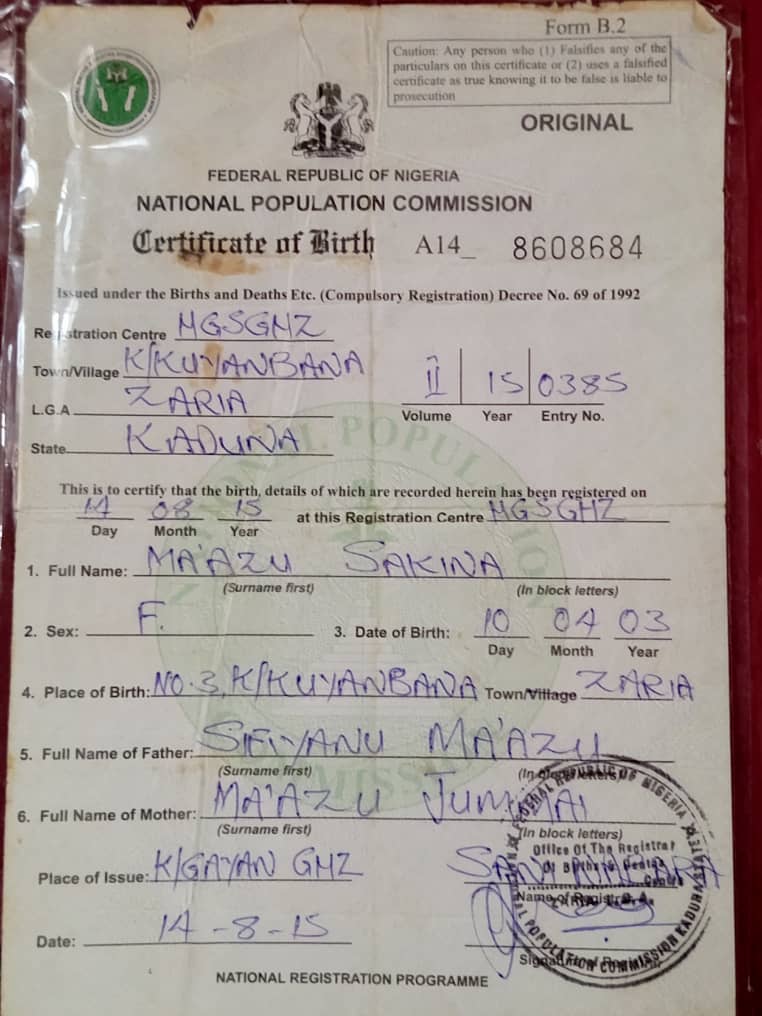 Form B.2
Caution: Any person who (1) Falsifies any of the
particulars on this certificate or (2) uses a falsified
certificate as true knowing it to be false is liable to
prosecution
ORIGINAL
FEDERAL REPUBLIC OF NIGERIA
NATIONAL POPULATION COMMISSION
Certificate of Birth A14_ 8608684
Issued under the Births and Deaths Etc. (Compulsory Registration) Decree No. 69 of 1992
Registration Centre MGSGHZ
Town/Village K/KUYANBANA
L.G.A ZARIA
State KADUNA
II 15 0385
Volume Year Entry No.
This is to certify that the birth, details of which are recorded herein has been registered on
14 08 15 at this Registration Centre MGSGHZ
Day Month Year
1. Full Name: MA'AZU SAKINA
(Surname first) (In block letters)
2. Sex: F. 3. Date of Birth: 10 04 03
Day Month Year
4. Place of Birth: NO.3, K/KUYANBANA Town/Village ZARIA
5. Full Name of Father: MA'AZU
(Surname first) (In block letters)
6. Full Name of Mother: MA'AZU JUMMAI
(Surname first) (In block letters)
Place of Issue: K/GAYAN GHZ
Name of Registrar
Date: 14-8-15
Signature of Registrar
NATIONAL REGISTRATION PROGRAMME
FEDERAL REPUBLIC OF NIGERIA
Office Of The Registrar
Of Births & Deaths
NATIONAL POPULATION COMMISSION KADUNA STATE